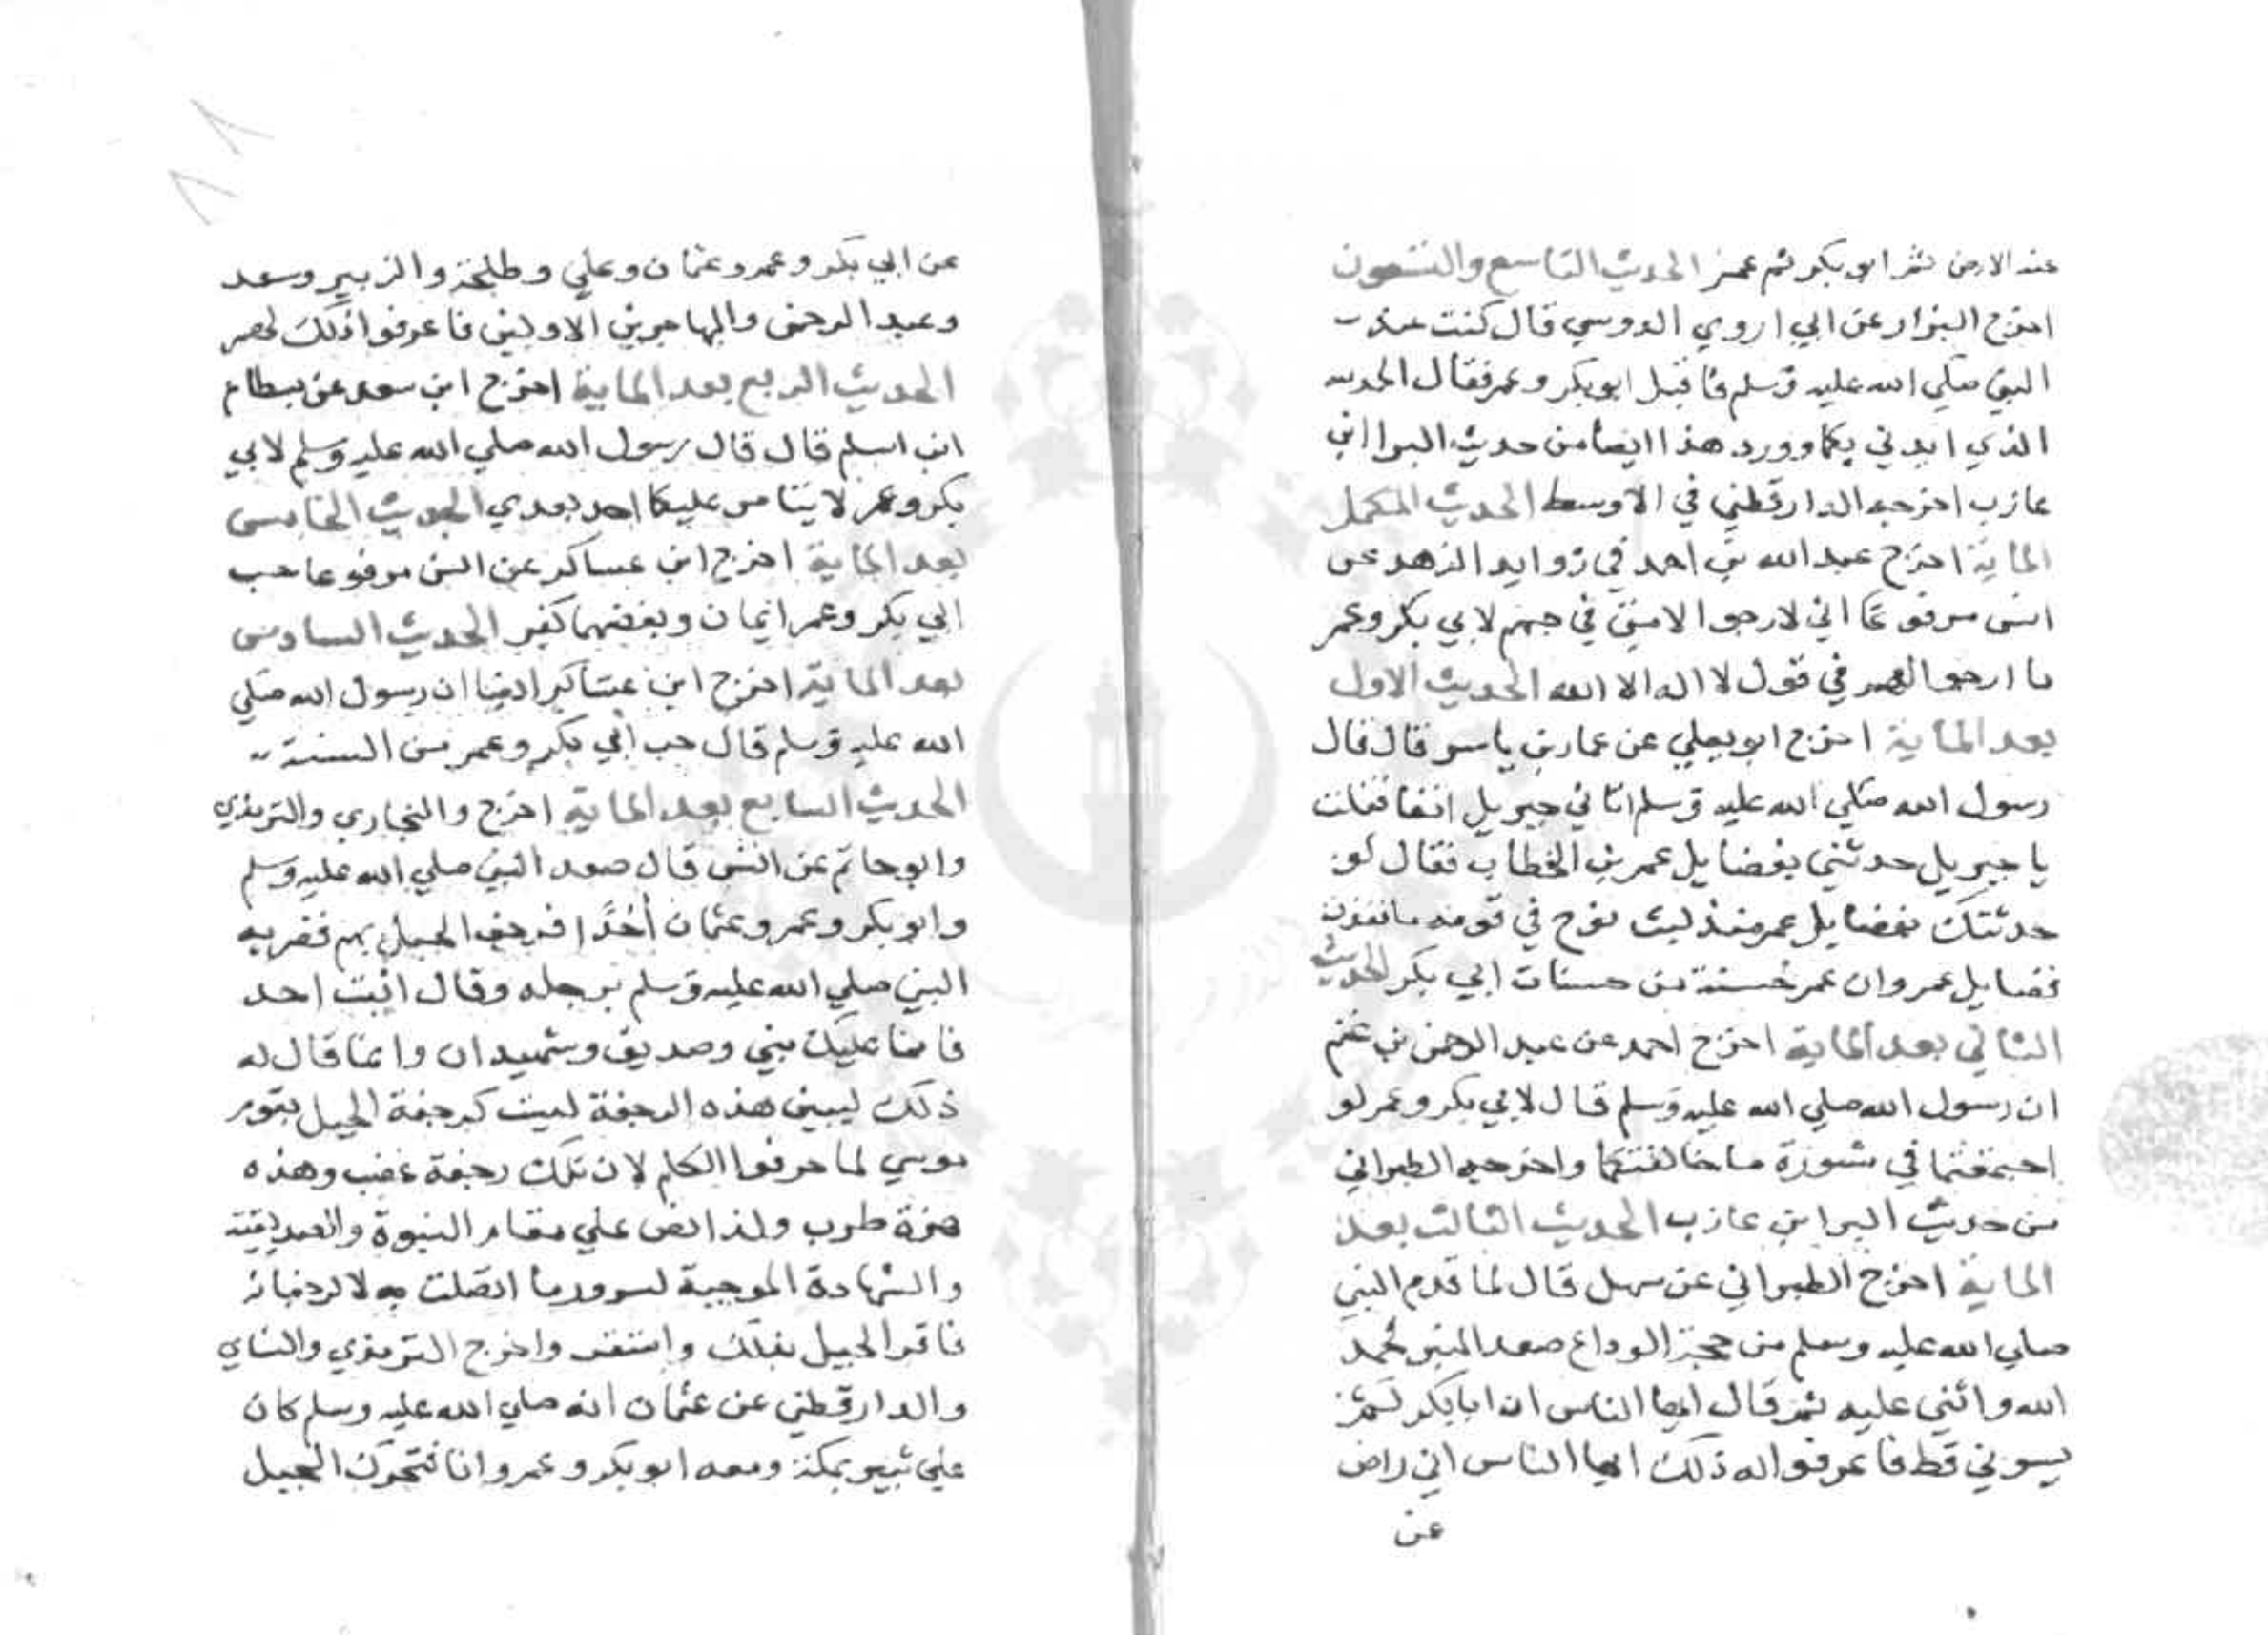 عنه الارض ثم ابو بكر ثم عمر الحديث التاسع والتسعون
اخرج البزار عن ابي اروي الدوسي قال كنت عند
النبي صلي الله عليه وسلم فاقبل ابو بكر وعمر فقال الحمد لله
الذي ايدني بكما وورد هذا ايضا من حديث البرا ابن
عازب اخرجه الدارقطني في الاوسط الحديث المكمل
الماية اخرج عبد الله بن احمد في زوايد الزهد عن
انس مرفوعا اني لارجوا لامتي في حبهم لابي بكر وعمر
ما ارجوا لهم في قول لا اله الا الله الحديث الاول
بعد الماية اخرج ابو يعلي عن عمار بن ياسر قال قال
رسول الله صلي الله عليه وسلم اتاني جبريل انفا فقلت
يا جبريل حدثني بفضايل عمر بن الخطاب فقال لو
حدثتك بفضايل عمر منذ لبث نوح في قومه ما نفدت
فضايل عمر وان عمر حسنة من حسنات ابي بكر الحديث
الثاني بعد الماية اخرج احمد عن عبد الرحمن بن غنم
ان رسول الله صلي الله عليه وسلم قال لابي بكر وعمر لو
اجتمعتما في مشورة ما خالفتكما واخرجه الطبراني
من حديث البرا بن عازب الحديث الثالث بعد
الماية اخرج الطبراني عن سهل قال لما قدم النبي
صلي الله عليه وسلم من حجة الوداع صعد المنبر فحمد
الله واثني عليه ثم قال ايها الناس ان ابا بكر لم
يسوني قط فاعرفوا له ذلك ايها الناس اني راض
عن
٨٨
عن ابي بكر وعمر وعثمان وعلي وطلحة والزبير وسعد
وعبد الرحمن والمهاجرين الاولين فاعرفوا ذلك لهم
الحديث الربع بعد الماية اخرج ابن سعد عن بسطام
ابن اسلم قال قال رسول الله صلي الله عليه وسلم لابي
بكر وعمر لا يتامر عليكما احد بعدي الحديث الخامس
بعد الماية اخرج ابن عساكر عن انس مرفوعا حب
ابي بكر وعمر ايمان وبغضهما كفر الحديث السادس
بعد الماية اخرج ابن عساكر ايضا ان رسول الله صلي
الله عليه وسلم قال حب ابي بكر وعمر من السنة
الحديث السابع بعد الماية اخرج والبخاري والترمذي
وابو حاتم عن انس قال صعد النبي صلي الله عليه وسلم
وابو بكر وعمر وعثمان أحدا فرجف الجبل بهم فضربه
النبي صلي الله عليه وسلم برجله وقال اثبت احد
فانما عليك نبي وصديق وشهيدان وانما قال له
ذلك ليبين هذه الرجفة ليست كرجفة الجبل بقوم
موسي لما حرفوا الكلم لان تلك رجفة غضب وهذه
هزة طرب ولذا نص علي مقام النبوة والصديقية
والشهادة الموجبة لسرور ما اتصلت به لا لرجفانه
فاقر الجبل بذلك واستقر واخرج الترمذي والنساي
والدارقطني عن عثمان انه صلي الله عليه وسلم كان
علي ثبير بمكة ومعه ابو بكر وعمر وانا فتحرك الجبل